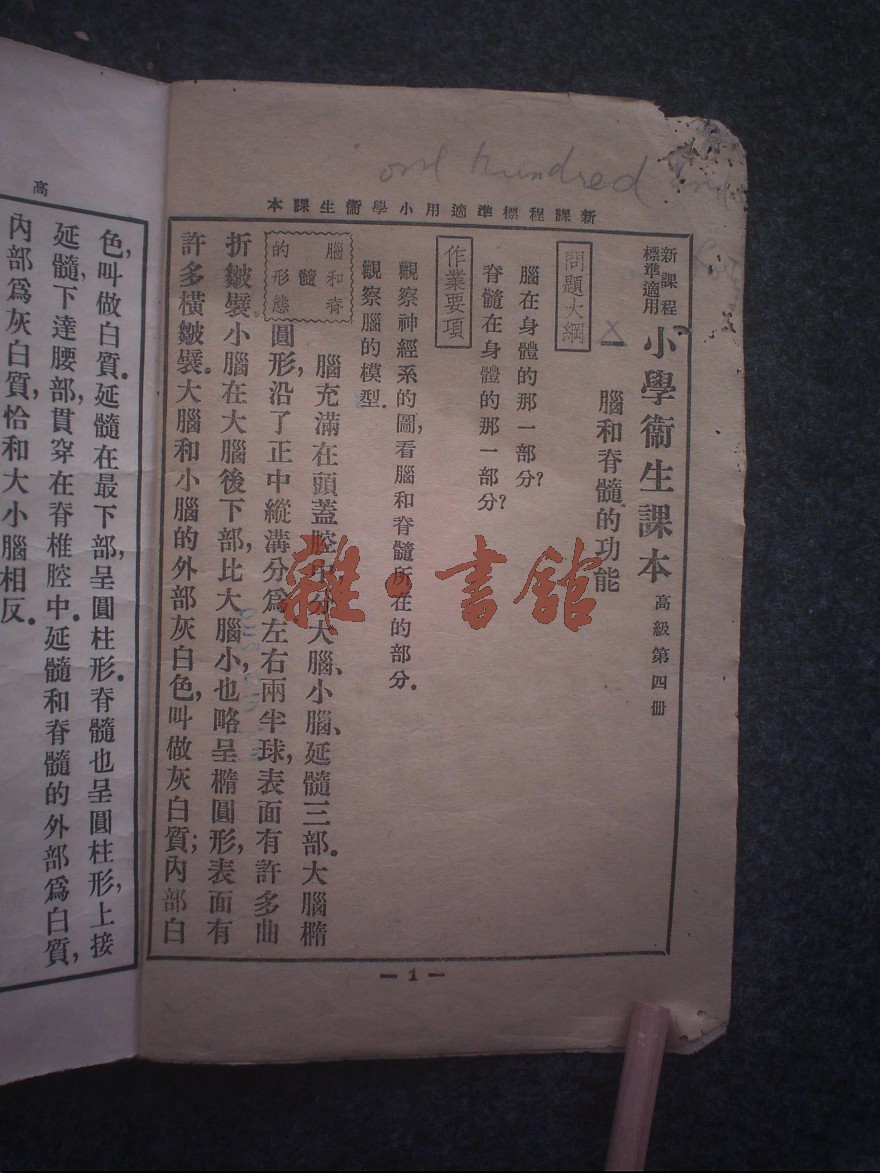 one hundred and
新課程標準適用小學衞生課本
新課程
標準適用
小學衞生課本
高級第四冊
一 腦和脊髓的功能
問題大綱
腦在身體的那一部分?
脊髓在身體的那一部分?
作業要項
觀察神經系的圖,看腦和脊髓所在的部分.
觀察腦的模型.
腦和脊
髓
的形態
腦充滿在頭蓋腔中,分大腦、小腦、延髓三部.大腦橢
圓形,沿了正中縱溝分爲左右兩半球,表面有許多曲
折皺襞.小腦在大腦後下部,比大腦小,也略呈橢圓形,表面有
許多橫皺襞.大腦和小腦的外部灰白色,叫做灰白質;內部白
— 1 —
高
色,叫做白質.延髓在最下部,呈圓柱形.脊髓也呈圓柱形,上接
延髓,下達腰部,貫穿在脊椎腔中.延髓和脊髓的外部爲白質,
內部爲灰白質,恰和大小腦相反.
雜·書館